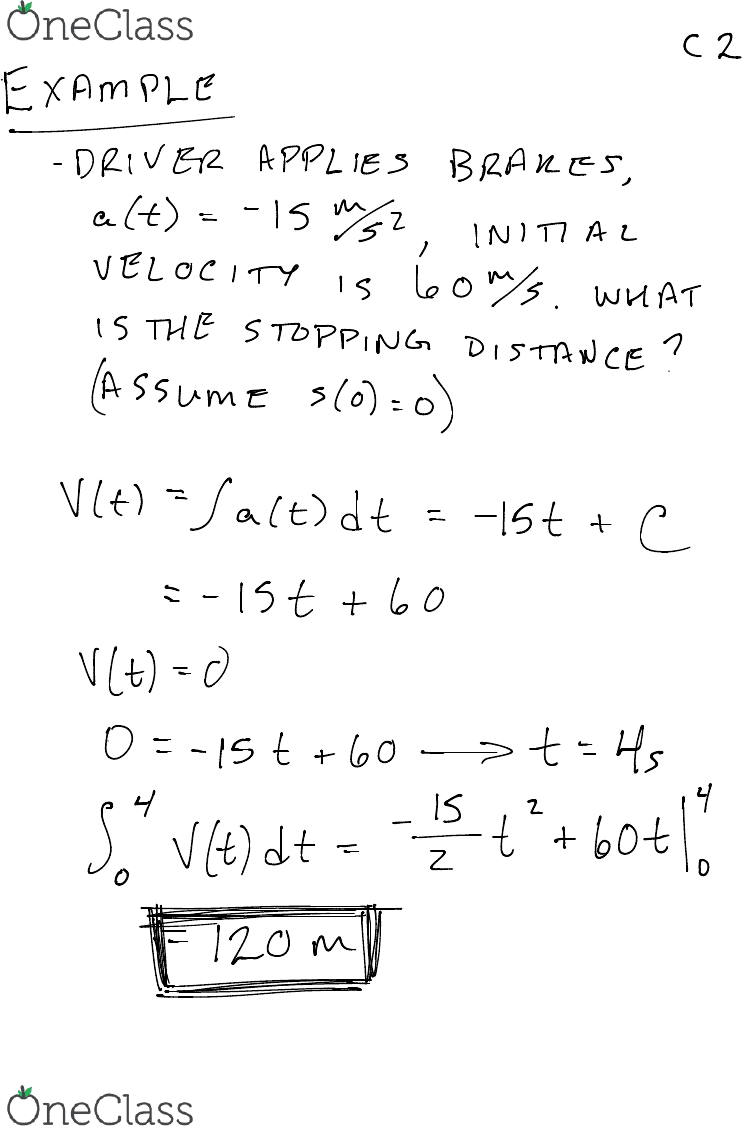 OneClass
C2
EXAMPLE
- DRIVER APPLIES BRAKES,
a(t) = -15 m/s², INITIAL
VELOCITY IS 60 m/s. WHAT
IS THE STOPPING DISTANCE?
(ASSUME s(0)=0)
V(t) = ∫a(t)dt = -15t + C
= -15t + 60
V(t) = 0
0 = -15t + 60 → t = 4s
∫₀⁴ V(t)dt = -15/2 t² + 60t |₀⁴
= 120 m
OneClass